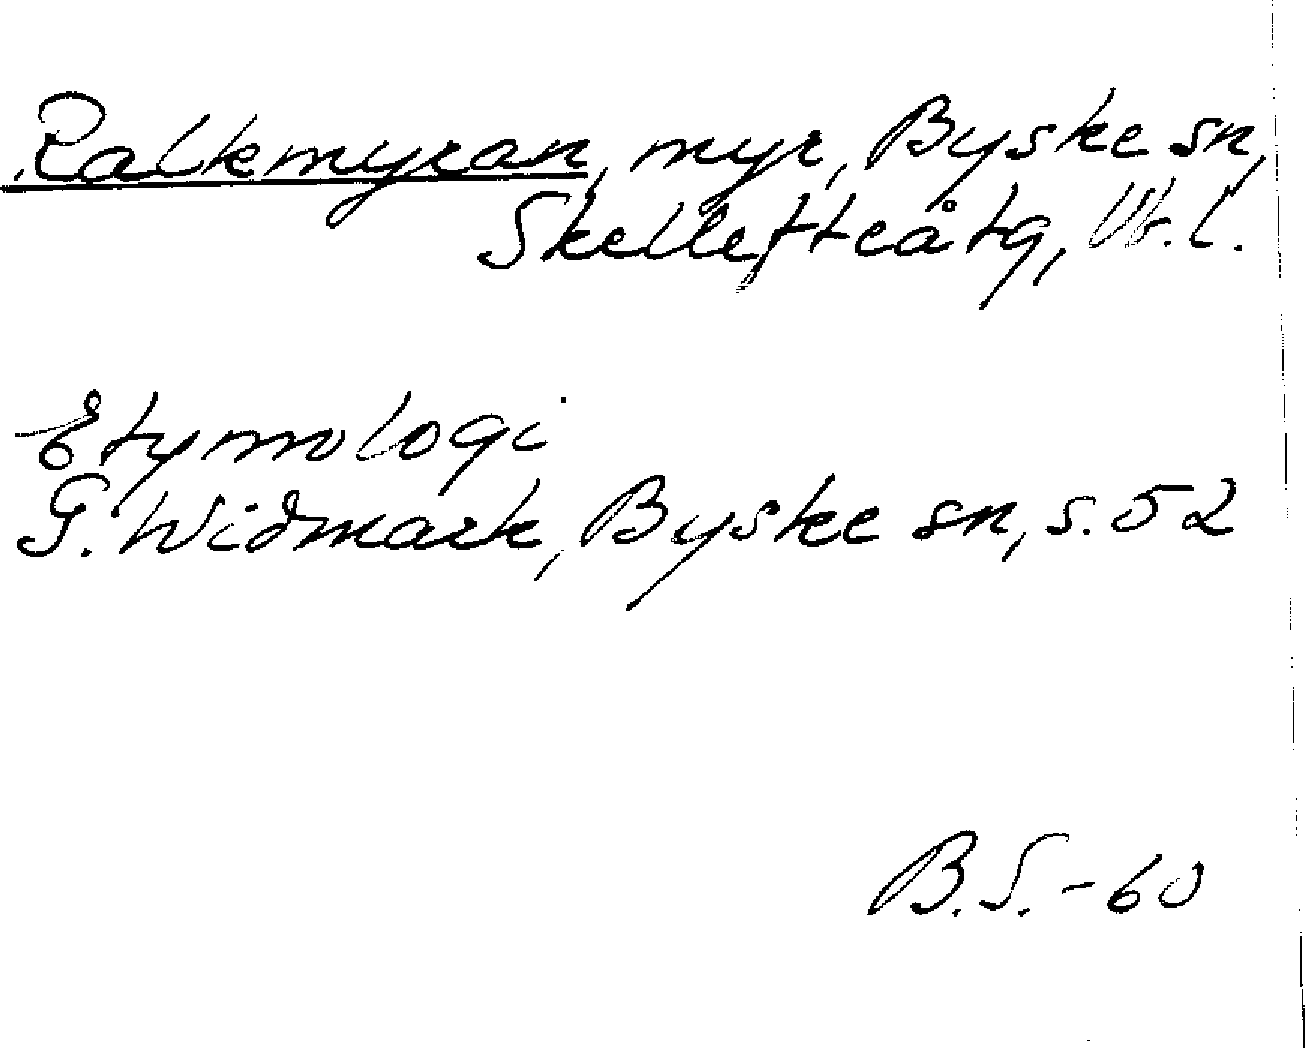 Ralkmyran, myr, Byske sn,
Skellefteåtg, Vb. l.
Etymologi
G. Widmark, Byske sn, s. 52
B.S. -60